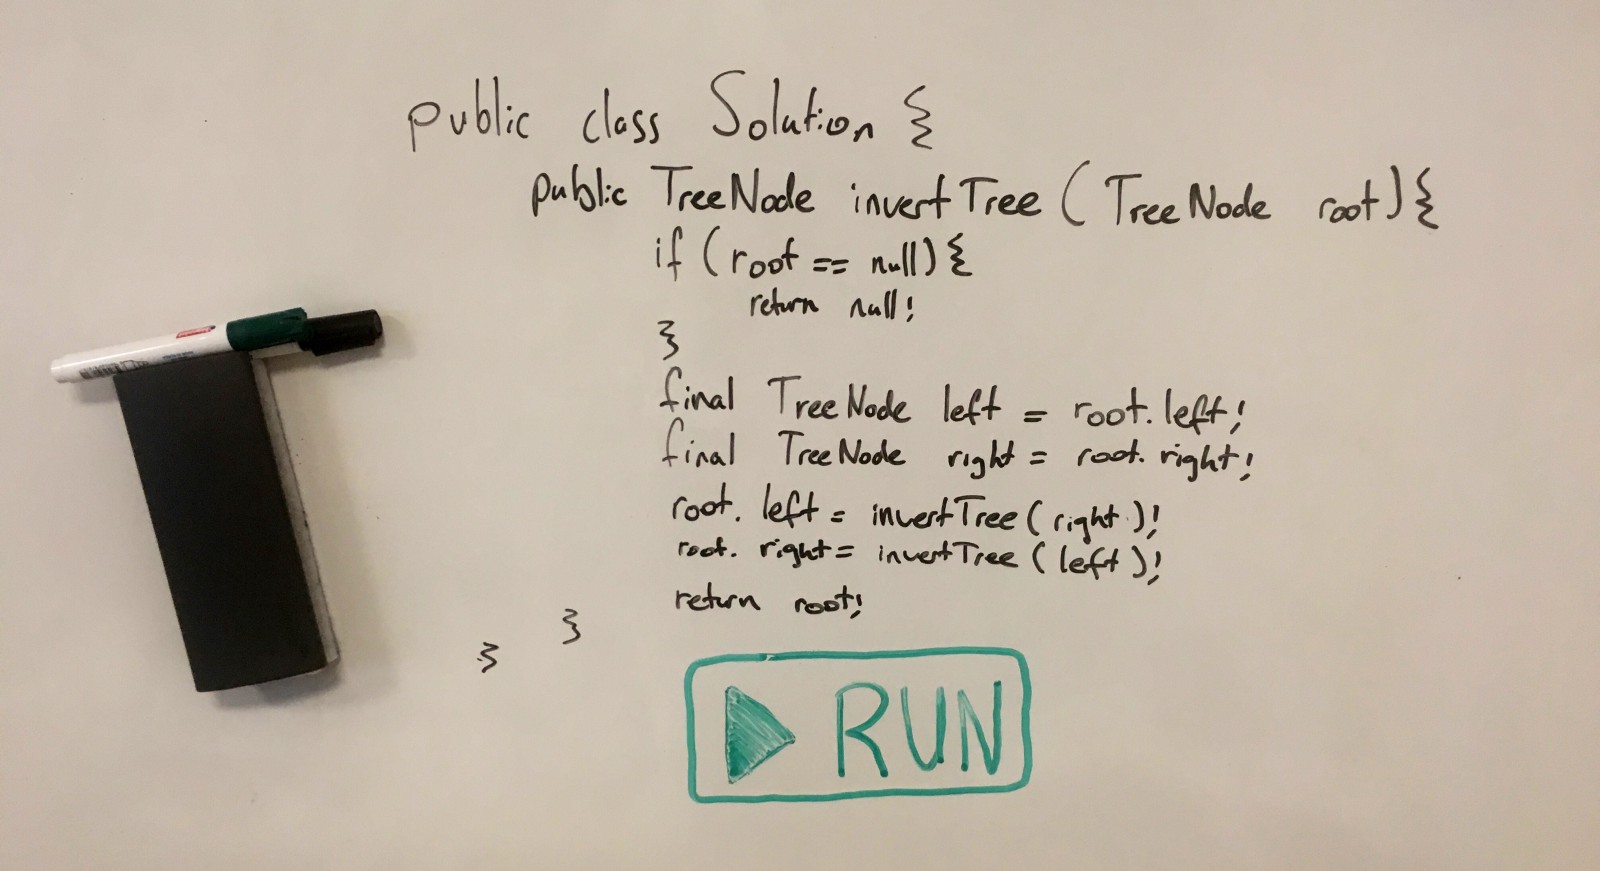 public class Solution {
public TreeNode invertTree (TreeNode root) {
if (root == null) {
return null;
}
final TreeNode left = root.left;
final TreeNode right = root.right;
root.left = invertTree (right);
root.right = invertTree (left);
return root;
}
}
RUN